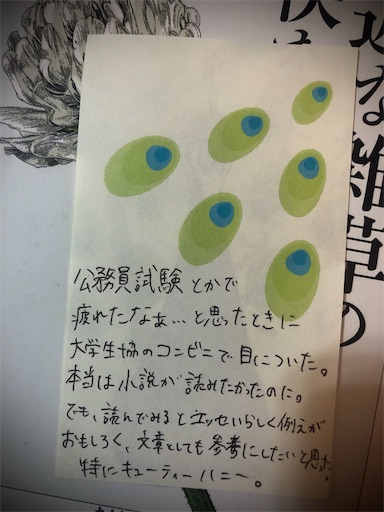 近な雑草の
公務員試験とかで
疲れたなぁ…と思ったときに
大学生協のコンビニで目についた。
本当は小説が読みたかったのに。
でも、読んでみるとエッセイらしく例えが
おもしろく、文章としても参考にしたいと思った。
特にキューティーハニー。